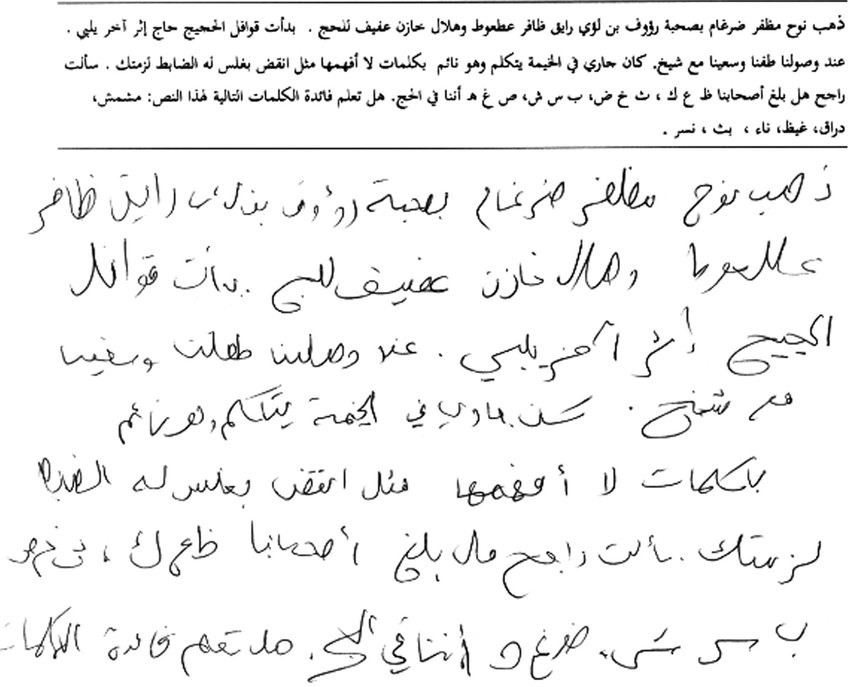 ذهب نوح مظفر ضرغام بصحبة رؤوف بن لؤي رايق ظافر عطعوط وهلال خازن عفيف للحج . بدأت قوافل الحجيج حاج إثر آخر يلبي .
عند وصولنا طفنا وسعينا مع شيخ. كان جاري في الخيمة يتكلم وهو نائم بكلمات لا أفهمها مثل انقض بغلس له الضابط لزمتك . سألت
راجح هل بلغ أصحابنا ظ ع ك ، ث خ ض، ب س ش، ص غ هـ أننا في الحج. هل تعلم فائدة الكلمات التالية لهذا النص: مشمش،
دراق، غيظ، ناء ، بث ، نسر .
ذهب نوح مظفر ضرغام بصحبة رؤوف بن لؤي رايق ظافر
عطعوط وهلال خازن عفيف للحج . بدأت قوافل
الحجيج إثر آخر يلبي . عند وصلنا طفنا وسعينا
مع شيخ . كان جاري في الخيمة يتكلم وهو نائم
بكلمات لا أفهمها مثل انقض بغلس له الضابط
لزمتك . سألت راجح هل بلغ أصحابنا ظ ع ك ،
ب س ش، ص غ ه أننا في الحج . هل تعلم فائدة الكلمات